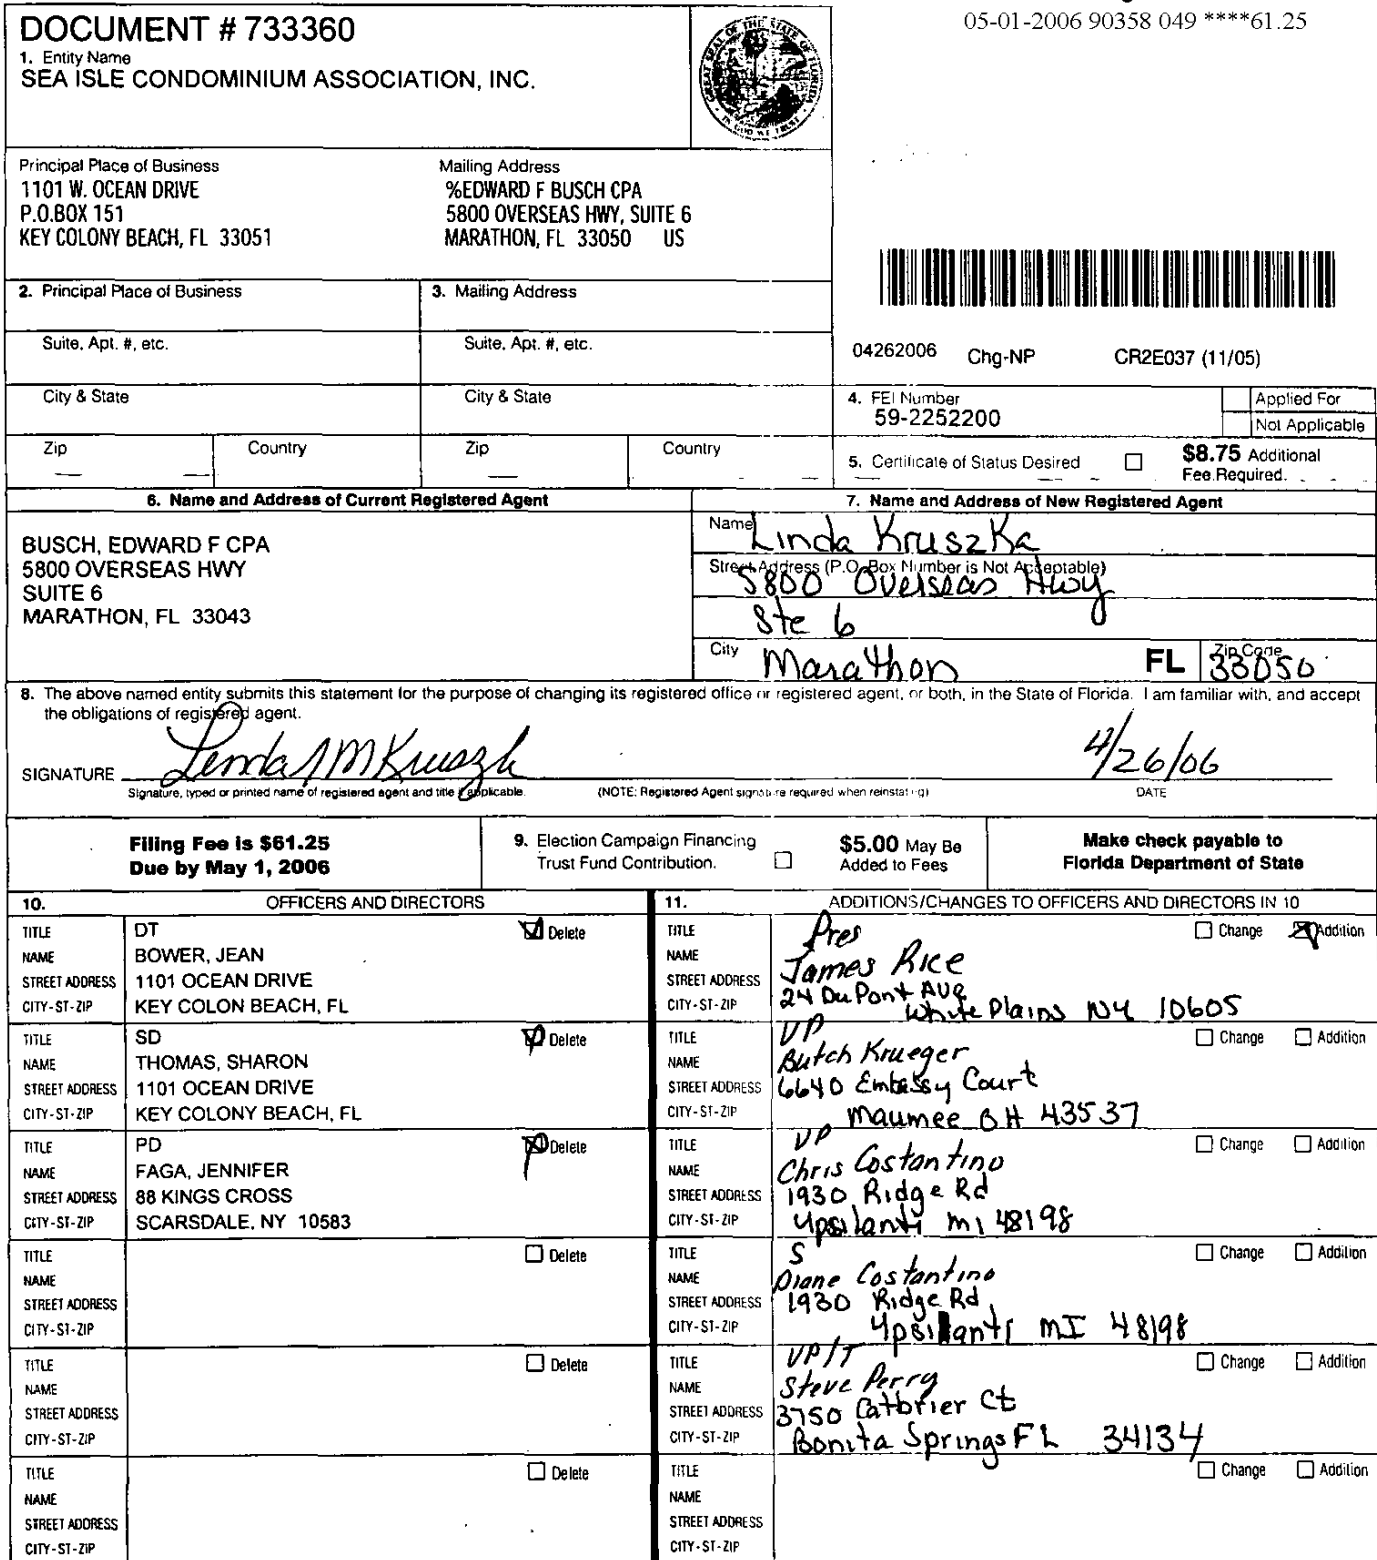 05-01-2006 90358 049 ****61.25
DOCUMENT # 733360
1. Entity Name
SEA ISLE CONDOMINIUM ASSOCIATION, INC.
GREAT SEAL OF THE STATE OF FLORIDA
IN GOD WE TRUST
Principal Place of Business
1101 W. OCEAN DRIVE
P.O.BOX 151
KEY COLONY BEACH, FL 33051
Mailing Address
%EDWARD F BUSCH CPA
5800 OVERSEAS HWY, SUITE 6
MARATHON, FL 33050 US
2. Principal Place of Business
3. Mailing Address
Suite, Apt. #, etc.
Suite, Apt. #, etc.
04262006 Chg-NP CR2E037 (11/05)
City & State
City & State
4. FEI Number
59-2252200
Applied For
Not Applicable
Zip Country
Zip Country
5. Certificate of Status Desired
$8.75 Additional
Fee Required.
6. Name and Address of Current Registered Agent
BUSCH, EDWARD F CPA
5800 OVERSEAS HWY
SUITE 6
MARATHON, FL 33043
7. Name and Address of New Registered Agent
Name Linda Kruszka
Street Address (P.O. Box Number is Not Acceptable)
5800 Overseas Hwy
Ste 6
City Marathon FL Zip Code 33050
8. The above named entity submits this statement for the purpose of changing its registered office or registered agent, or both, in the State of Florida. I am familiar with, and accept
the obligations of registered agent.
SIGNATURE Linda M Kruszka 4/26/06
Signature, typed or printed name of registered agent and title if applicable. (NOTE: Registered Agent signature required when reinstating) DATE
Filing Fee is $61.25
Due by May 1, 2006
9. Election Campaign Financing
Trust Fund Contribution.
$5.00 May Be
Added to Fees
Make check payable to
Florida Department of State
10. OFFICERS AND DIRECTORS
TITLE DT Delete
NAME BOWER, JEAN
STREET ADDRESS 1101 OCEAN DRIVE
CITY-ST-ZIP KEY COLON BEACH, FL
TITLE SD Delete
NAME THOMAS, SHARON
STREET ADDRESS 1101 OCEAN DRIVE
CITY-ST-ZIP KEY COLONY BEACH, FL
TITLE PD Delete
NAME FAGA, JENNIFER
STREET ADDRESS 88 KINGS CROSS
CITY-ST-ZIP SCARSDALE, NY 10583
TITLE Delete
NAME
STREET ADDRESS
CITY-ST-ZIP
TITLE Delete
NAME
STREET ADDRESS
CITY-ST-ZIP
TITLE Delete
NAME
STREET ADDRESS
CITY-ST-ZIP
11. ADDITIONS/CHANGES TO OFFICERS AND DIRECTORS IN 10
TITLE Pres Change Addition
NAME James Rice
STREET ADDRESS 24 DuPont Ave
CITY-ST-ZIP White Plains NY 10605
TITLE VP Change Addition
NAME Butch Krueger
STREET ADDRESS 6640 Embassy Court
CITY-ST-ZIP Maumee OH 43537
TITLE VP Change Addition
NAME Chris Costantino
STREET ADDRESS 1930 Ridge Rd
CITY-ST-ZIP Ypsilanti MI 48198
TITLE S Change Addition
NAME Diane Costantino
STREET ADDRESS 1930 Ridge Rd
CITY-ST-ZIP Ypsilanti MI 48198
TITLE VP/T Change Addition
NAME Steve Perry
STREET ADDRESS 3750 Catbrier Ct
CITY-ST-ZIP Bonita Springs FL 34134
TITLE Change Addition
NAME
STREET ADDRESS
CITY-ST-ZIP